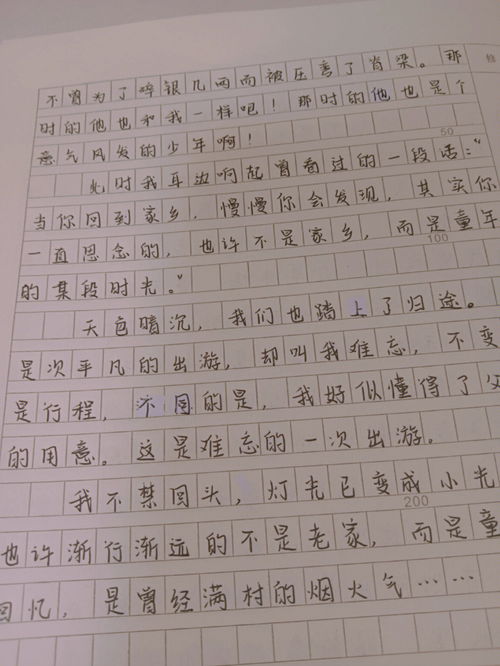 不曾为了碎银几两而被压弯了脊梁。那
时的他也和我一样吧！那时的他也是个
意气风发的少年啊！
50
此时我耳边响起曾看过的一段话：“
当你回到家乡，慢慢你会发现，其实你
一直思念的，也许不是家乡，而是童年
100
的某段时光。”
天色暗沉，我们也踏上了归途。
是次平凡的出游，却叫我难忘，不变
是行程，不同的是，我好似懂得了父
的用意。这是难忘的一次出游。
我不禁回头，灯光已变成小光
200
也许渐行渐远的不是老家，而是童
回忆，是曾经满村的烟火气……